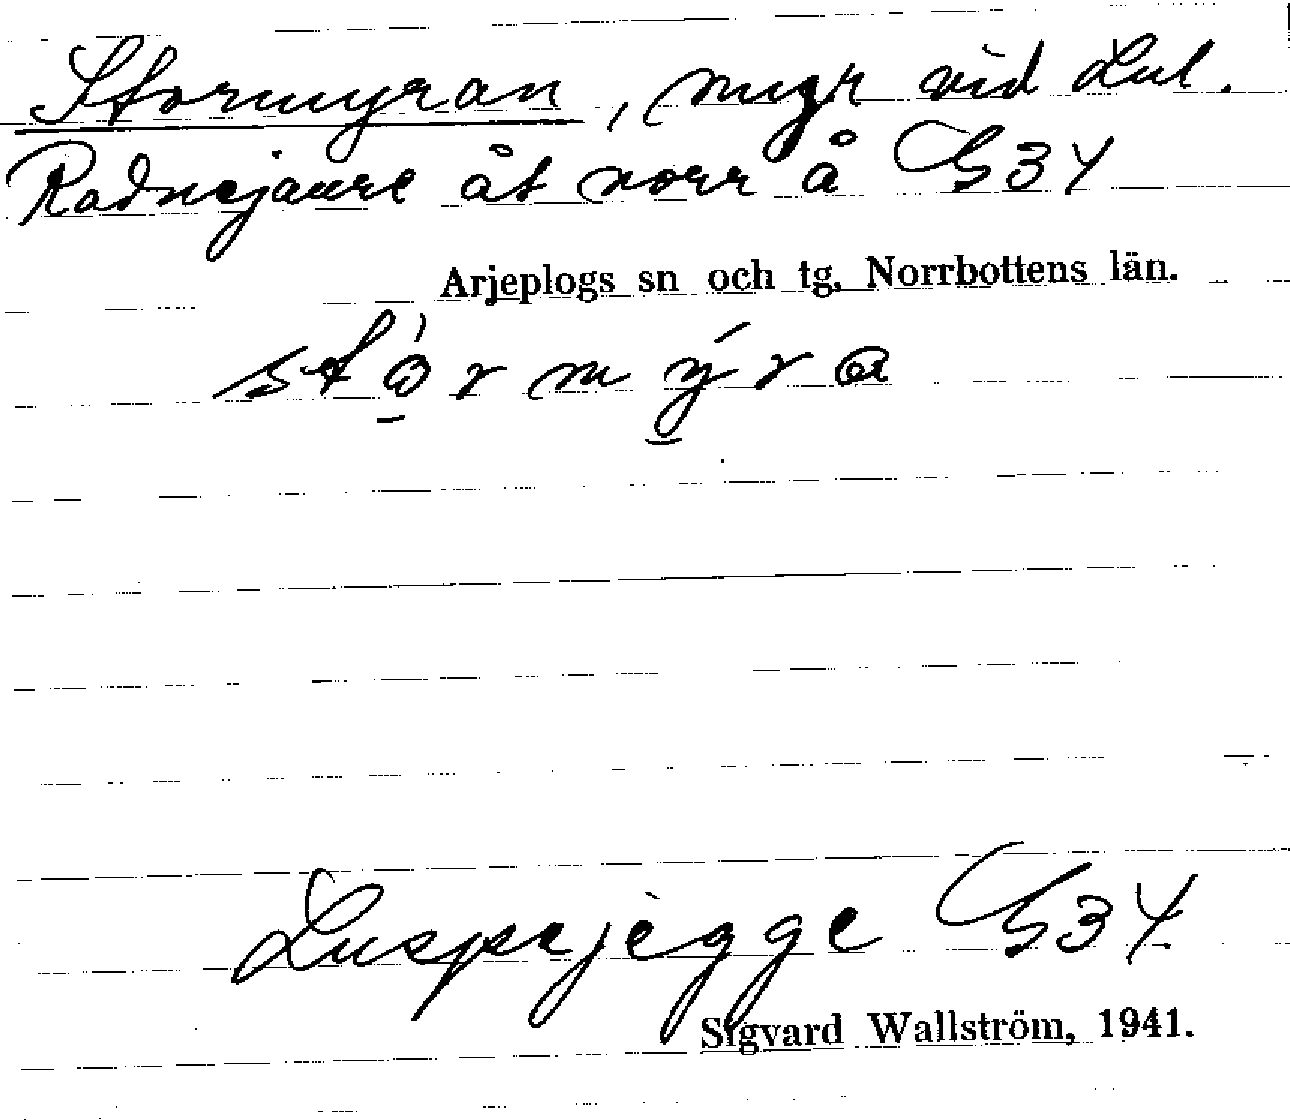 Stormyran, myr vid Lul.
Radnejaure åt norr å G34
Arjeplogs sn och tg, Norrbottens län.
stó̱rmý̱ra
Luspejegge G34
Sigvard Wallström, 1941.